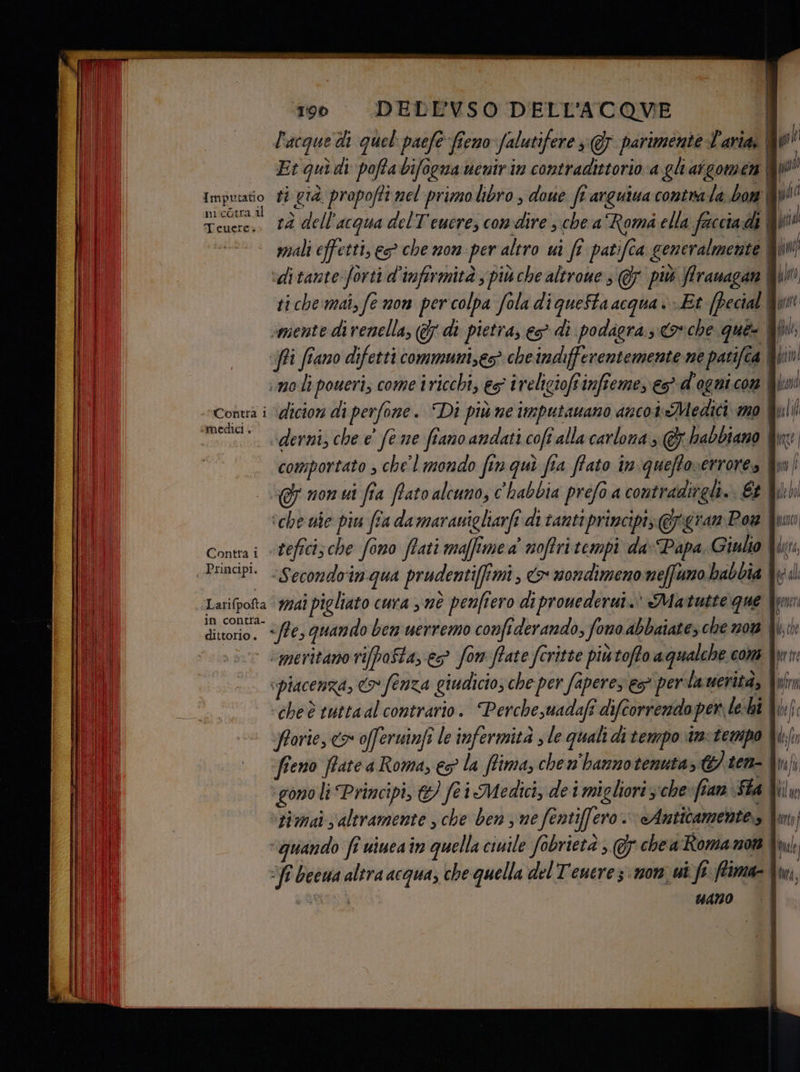 190 DELL'VSO DELL'ACQVE
l'acque di quel paese sieno salutifere, & parimente l'aria.
Et quì di possa bisogna uenir in contradittorio a gli argomen
Imputatio ti già proposti nel primo libro, doue si arguiua contra la bon
ni cõtra il
Teuere. tà dell'acqua del Teuere, con dire, che a Roma ella faccia di
mali effetti, & che non per altro ui si patisca generalmente
di tante sorti d'infirmità, più che altroue, & più strauagan
ti che mai, se non per colpa sola di questa acqua. Et special
mente di renella, & di pietra, & di podagra, & che que-
sti siano difetti communi, & che indifferentemente ne patisca
no li poueri, come i ricchi, & i religiosi insieme, & d'ogni con
Contra i dicion di persone. Di più ne imputauano anco i Medici mo
medici. derni, che e' se ne siano andati così alla carlona, & habbiano
comportato, che'l mondo sin quì sia stato in questo errore,
& non ui sia stato alcuno, c'habbia preso a contradirgli. Et
che uie piu sia da marauigliarsi di tanti principi, & gran Pon
Contra i tefici, che sono stati massime a' nostri tempi da Papa Giulio
Principi. Secondo in qua prudentissimi, & nondimeno nessuno habbia
La risposta mai pigliato cura, nè pensiero di prouederui. Ma tutte que
in contra-
dittorio. ste, quando ben uerremo considerando, sono abbaiate, che non
meritano risposta, & son state scritte più tosto a qualche com
piacenza, & senza giudicio, che per sapere, & per la uerità,
che è tutta al contrario. Perche, uadasi discorrendo per le hi
storie, & osseruinsi le infermità, le quali di tempo in tempo
sieno state a Roma, & la stima, che n'hanno tenuta, & ten-
gono li Principi, & se i Medici, de i migliori, che sian sta
ti mai, altramente, che ben, ne sentissero. Anticamente,
quando si uiuea in quella ciuile sobrietà, & che a Roma non
si beeua altra acqua, che quella del Teuere; non ui si stima-
uano